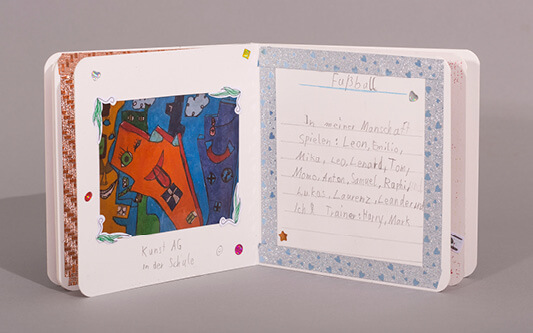 Kunst AG
in der Schule
Fußball
In meiner Manschaft
spielen: Leon, Emilia,
Mika, Leo, Lenard, Tom,
Momo, Anton, Samuel, Raphi,
Lukas, Laurenz, Leander und
Ich!! Trainer: Harry, Mark